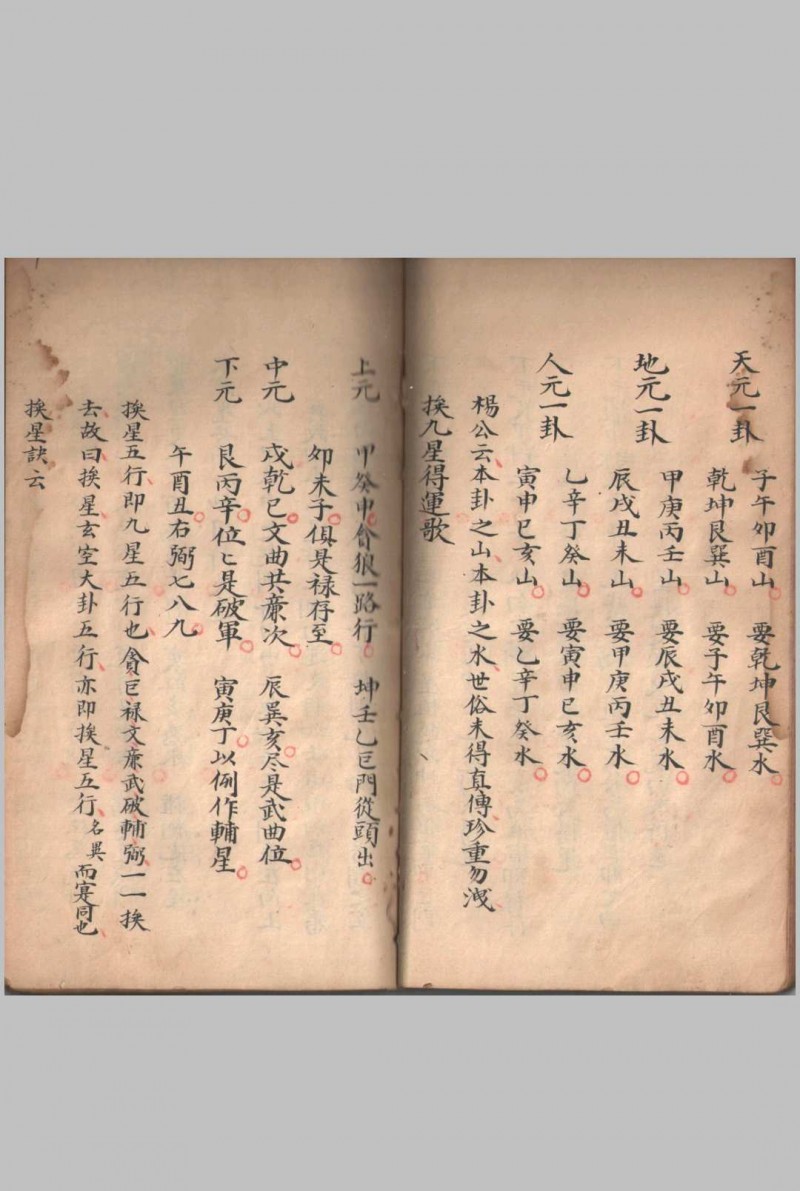 天元一卦
子午卯酉山。 要乾坤艮巽水。
乾坤艮巽山。 要子午卯酉水。
地元一卦
甲庚丙壬山。 要辰戌丑未水。
辰戌丑未山。 要甲庚丙壬水。
人元一卦
乙辛丁癸山。 要寅申巳亥水。
寅申巳亥山。 要乙辛丁癸水。
楊公云、本卦之山、本卦之水、世俗未得真傳、珍重勿洩
挨九星得運歌
上元 甲癸申貪狼一路行。 坤壬乙巨門從頭出。
卯未子。俱是禄存至。
中元 戌乾巳。文曲共亷次。 辰巽亥。尽是武曲位。
下元 艮丙辛。位〻是破軍。 寅庚丁。以例作輔星。
午酉丑。右弼七八九。
挨星五行、即九星五行也、貪巨禄文亷武破輔弼、一一挨
去、故曰挨星、玄空大卦五行、亦即挨星五行、名異而寔同也、
挨星訣云